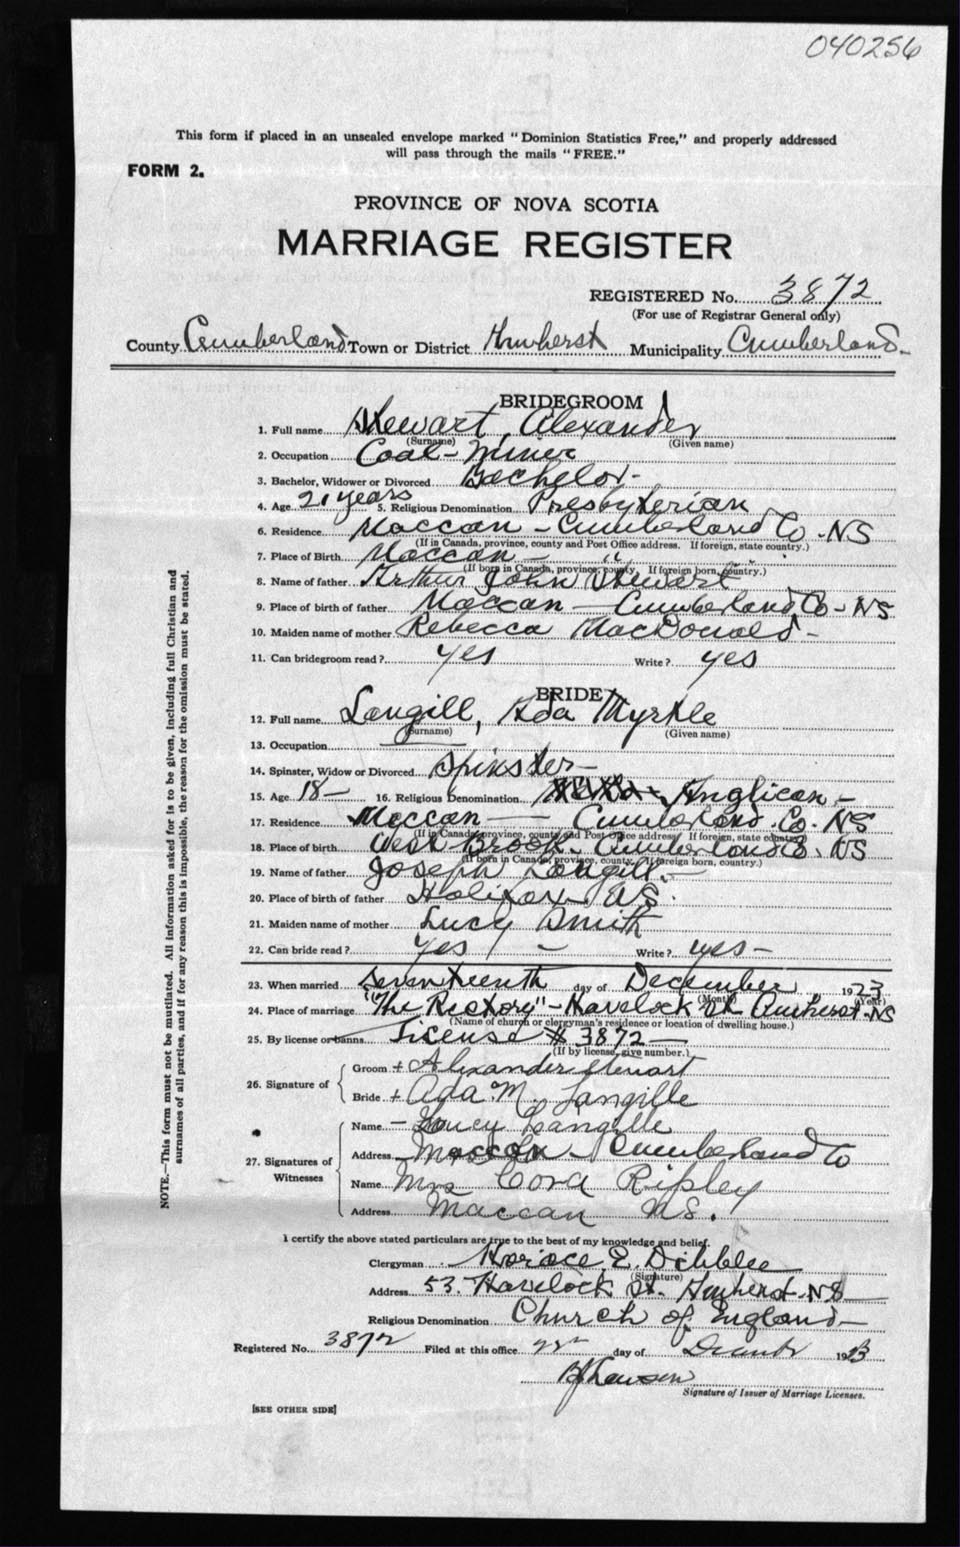 040256
This form if placed in an unsealed envelope marked "Dominion Statistics Free," and properly addressed
will pass through the mails "FREE."
FORM 2.
PROVINCE OF NOVA SCOTIA
MARRIAGE REGISTER
REGISTERED No. 3872
(For use of Registrar General only)
County Cumberland Town or District Amherst Municipality Cumberland
BRIDEGROOM
1. Full name Stewart Alexander
(Surname) (Given name)
2. Occupation Coal-Miner
3. Bachelor, Widower or Divorced Bachelor-
4. Age 21 years 5. Religious Denomination Presbyterian
6. Residence Maccan - Cumberland Co - NS
(If in Canada, province, county and Post Office address. If foreign, state country.)
7. Place of Birth Maccan - " "
(If born in Canada, province, county. If foreign born, country.)
8. Name of father Arthur John Stewart
9. Place of birth of father Maccan - Cumberland Co - NS
10. Maiden name of mother Rebecca MacDonald -
11. Can bridegroom read? yes Write? yes
BRIDE
12. Full name Langill, Ada Myrtle
(Surname) (Given name)
13. Occupation
14. Spinster, Widow or Divorced Spinster-
15. Age 18- 16. Religious Denomination Anglican -
17. Residence Maccan - Cumberland Co. NS
(If in Canada, province, county and Post Office address. If foreign, state country)
18. Place of birth West Brook. Cumberland Co. NS
(If born in Canada, province, county. If foreign born, country.)
19. Name of father Joseph Langill. -
20. Place of birth of father Halifax NS.
21. Maiden name of mother Lucy Smith
22. Can bride read? yes - Write? yes-
23. When married Seventeenth day of December 1923
(Month) (Year)
24. Place of marriage "The Rectory" - Havelock St Amherst-NS
(Name of church or clergyman's residence or location of dwelling house.)
25. By license or banns License # 3872 -
(If by license, give number.)
26. Signature of Groom + Alexander Stewart
Bride + Ada M. Langille
27. Signatures of Witnesses Name - Lucy Langille
Address Maccan - Cumberland Co
Name Mrs Cora Ripley
Address Maccan NS.
I certify the above stated particulars are true to the best of my knowledge and belief.
Clergyman Horace E. Dibblee
(Signature)
Address 53. Havelock St. Amherst-NS
Religious Denomination Church of England-
Registered No. 3872 Filed at this office 22nd day of December 1923
Signature of Issuer of Marriage Licenses.
[SEE OTHER SIDE]
NOTE.—This form must not be mutilated. All information asked for is to be given, including full Christian and
surnames of all parties, and if for any reason this is impossible, the reason for the omission must be stated.